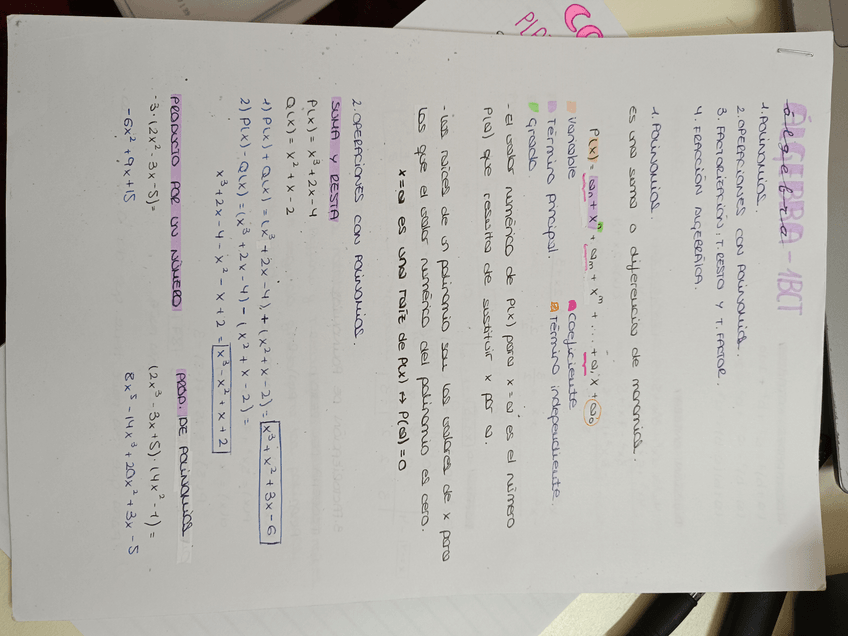 ÁLGEBRA - 1BCT
álgebra
1. POLINOMIOS.
2. OPERACIONES CON POLINOMIOS.
3. FACTORIZACIÓN, T. RESTO Y T. FACTOR.
4. FRACCIÓN ALGEBRÁICA.
1. POLINOMIOS.
Es una suma o diferencia de monomios.
P(x) = aₙ + xⁿ + aₘ + xᵐ + ... + a₁x + a₀
Variable Coeficiente
Término principal. Término independiente.
Grado
- El valor numérico de P(x) para x = a es el número
P(a) que resulta de sustituir x por a.
- Las raíces de un polinomio son los valores de x para
los que el valor numérico del polinomio es cero.
x = a es una raíz de P(x) ↔ P(a) = 0
2. OPERACIONES CON POLINOMIOS.
SUMA Y RESTA
P(x) = x³ + 2x - 4
Q(x) = x² + x - 2
1) P(x) + Q(x) = (x³ + 2x - 4) + (x² + x - 2) = x³ + x² + 3x - 6
2) P(x) - Q(x) = (x³ + 2x - 4) - (x² + x - 2) =
x³ + 2x - 4 - x² - x + 2 = x³ - x² + x + 2
PRODUCTO POR UN NÚMERO
-3 · (2x² - 3x - 5) =
-6x² + 9x + 15
PROD. DE POLINOMIOS
(2x³ - 3x + 5) · (4x² - 1) =
8x⁵ - 14x³ + 20x² + 3x - 5